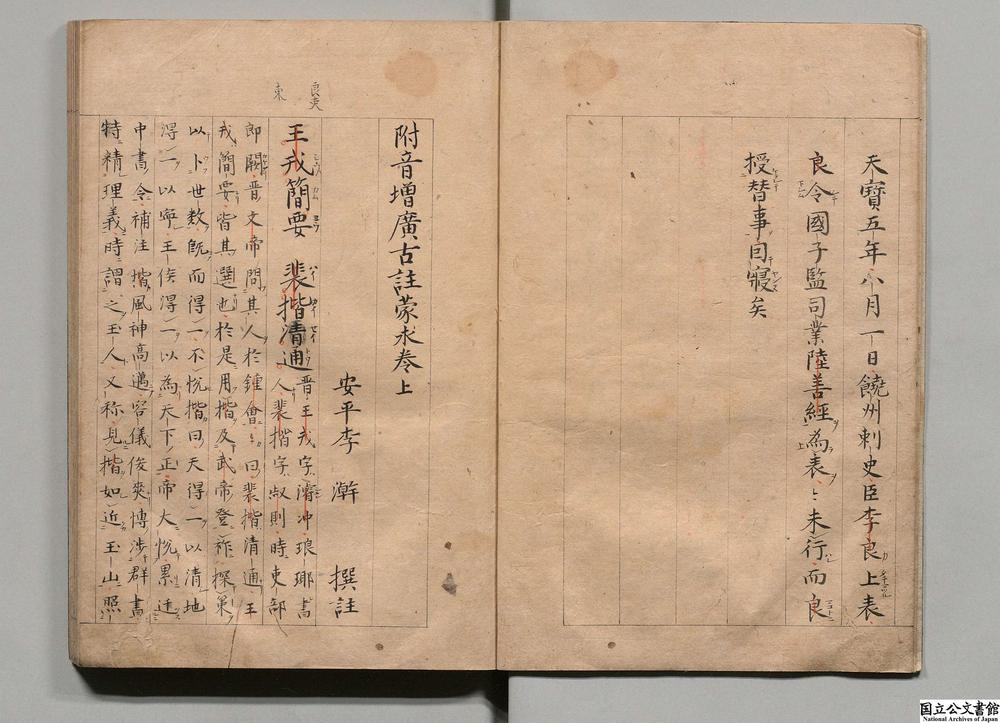 天寶五年八月一日饒州刺史臣李良上表
良令國子監司業陸善經為表〻未行而良
授替事因寢矣
附音增廣古註蒙求卷上
安平李瀚撰註
王戎簡要 裴揩清通 晋王戎字濬冲琅瑘
人裴揩字叔則時吏部
郎闕晋文帝問其人於鍾會〻曰裴揩清通王
戎簡要皆其選也於是用揩及武帝登祚探策
以卜世数既而得一不悦揩曰天得一以清地
得一以寧王侯得一以為天下正帝大悦累迁
中書令補注揩風神高邁容儀俊爽博涉群書
特精理義時謂之玉人又称見揩如近玉山照
良吏
国立公文書館
National Archives of Japan